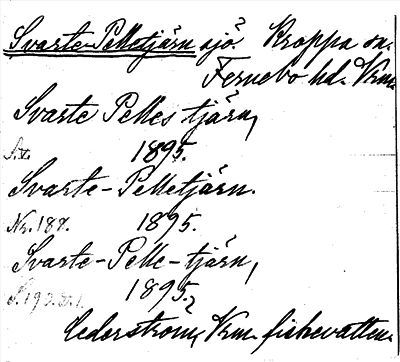 Svarte-Pelletjärn sjö. Kroppa sn.
Fernebo hd. Vrm.
Svarte Pelles tjärn,
S.V. 1895.
Svarte-Pelletjärn.
Nr. 187. 1895.
Svarte-Pelle-tjärn,
S. 193. 1895.
Cederström, Vrm. fiskevatten.